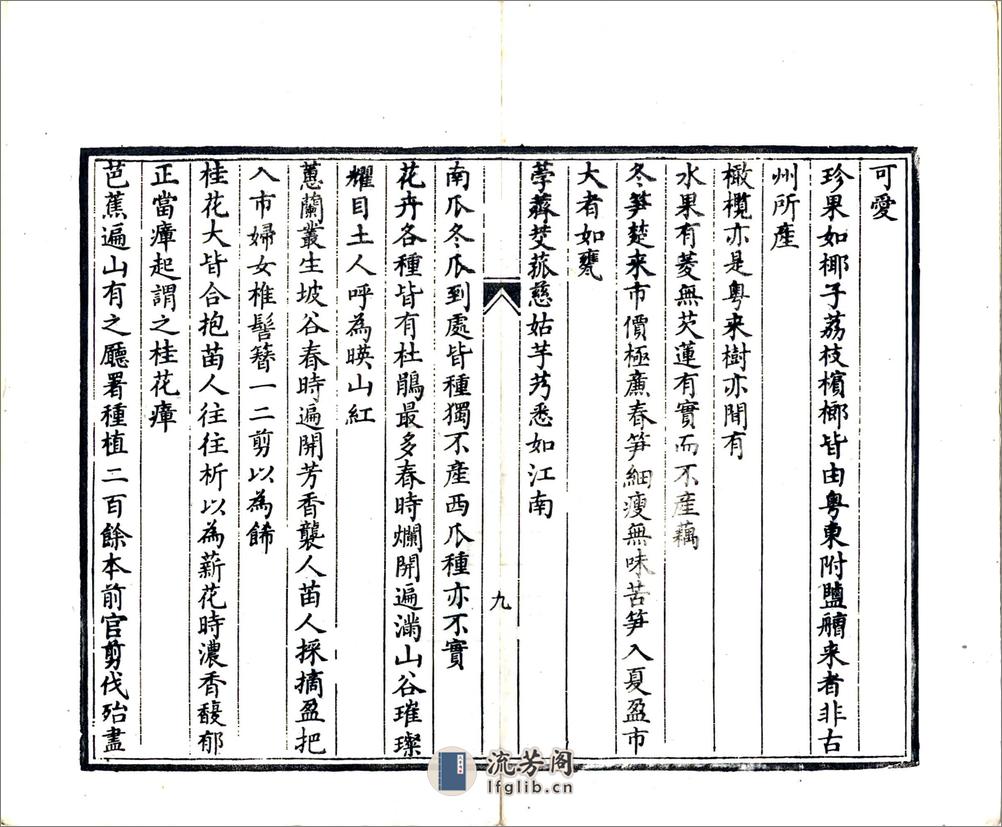 可愛
珍果如椰子荔枝檳榔皆由粵東附鹽艚来者非古
州所產
橄欖亦是粵来樹亦間有
水果有菱無芡蓮有實而不產藕
冬笋楚来市價極廉春笋細瘦無味苦笋入夏盈市
大者如甕
荸薺茭菰慈姑芋艿悉如江南
九
南瓜冬瓜到處皆種獨不產西瓜種亦不實
花卉各種皆有杜鵑最多春時爛開遍滿山谷璀璨
耀目土人呼為暎山紅
蕙蘭叢生坡谷春時遍開芳香襲人苗人採摘盈把
入市婦女椎髻簪一二剪以為餙
桂花大皆合抱苗人往往析以為薪花時濃香馥郁
正當瘴起謂之桂花瘴
芭蕉遍山有之廳署種植二百餘本前官剪伐殆盡
流芳阁
lfglib.cn